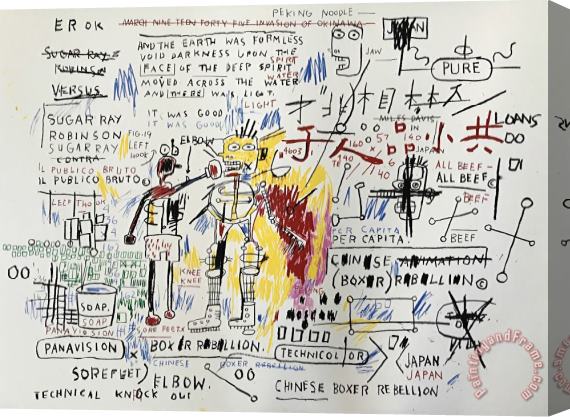 PEKING NOODLE
EROK
MARCH NINETEEN FORTY FIVE INVASION OF OKINAWA
JAPAN
AND THE EARTH WAS FORMLESS
VOID DARKNESS UPON THE
FACE OF THE DEEP SPIRIT
SPIRIT
MOVED ACROSS THE WATER
WATER
AND THERE WAS LIGHT.
LIGHT
JAW
PURE
SUGAR RAY
ROBINSON
VERSUS
IT WAS GOOD
IT WAS GOOD
SUGAR RAY
ROBINSON
SUGAR RAY
CONTRA
FIG.19
LEFT
HOOK
ELBOW
4603
MILES DAVIS
IN
JAPAN
LOANS
木 木
人 品 小 共
57
160
140
140
IL PUBLICO BRUTO
IL PUBLICO BRUTO
ALL BEEF
ALL BEEF
BEEF
BEEF
PER CAPITA
PER CAPITA.
KNEE
KNEE
CHINESE ANIMATION
(BOXER) REBELLION ©
SOAP.
SOAP
PANAVISION
PANAVISION
BOXER REBELLION.
CHINESE BOXER REBELLION
TECHNICOLOR
JAPAN
JAPAN
SOREFEET)
ELBOW.
TECHNICAL KNOCK OUT
CHINESE BOXER REBELLION
PaintingandFrame.com